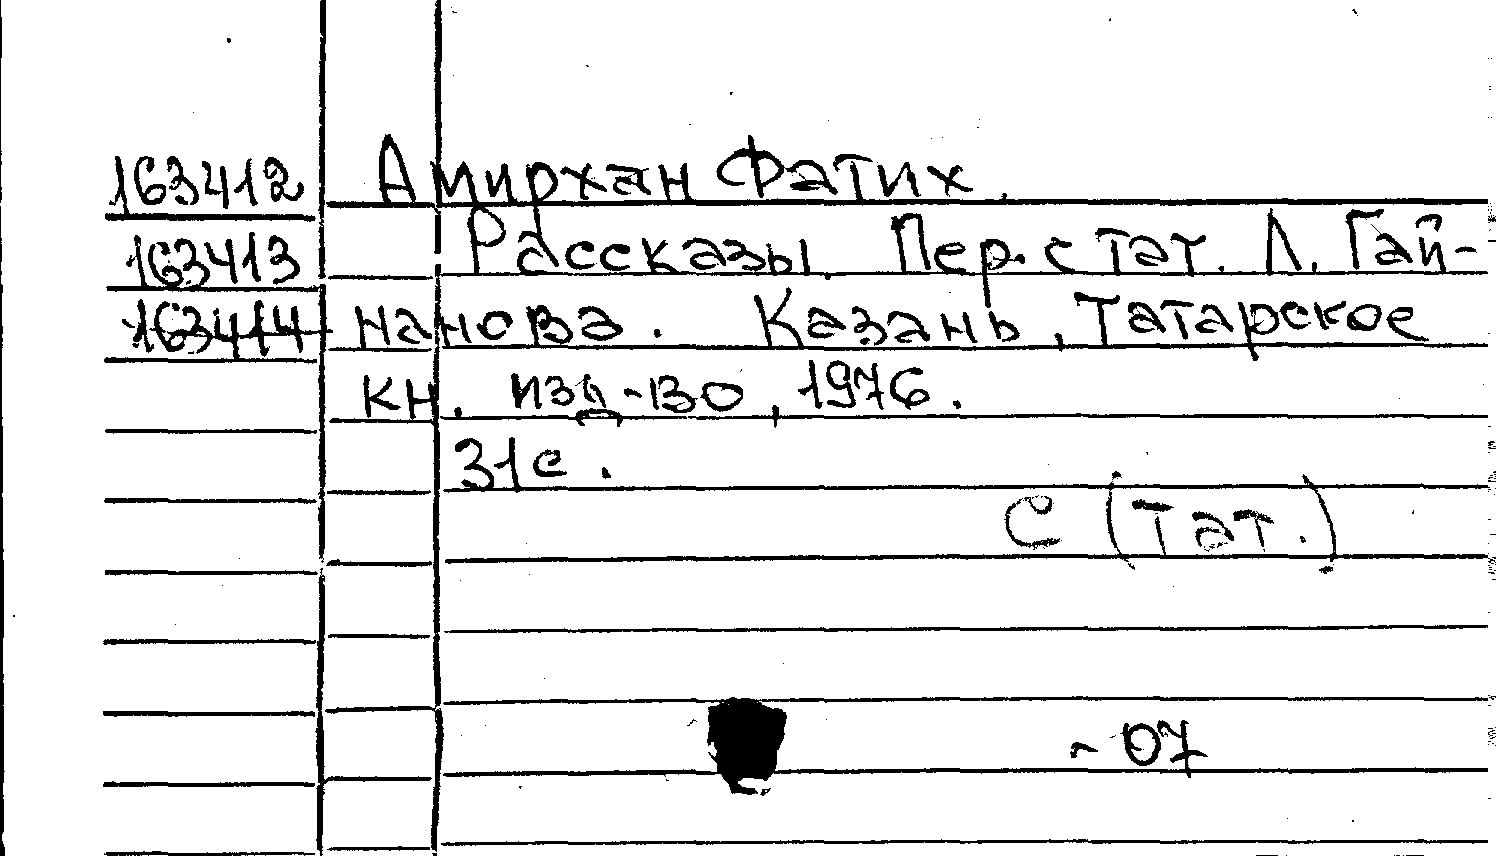 163412 Амирхан Фатих.
163413 Рассказы. Пер. с тат. Л. Гай-
163414 нанова. Казань, Татарское
кн. изд-во, 1976.
31с.
С (тат.)
-07